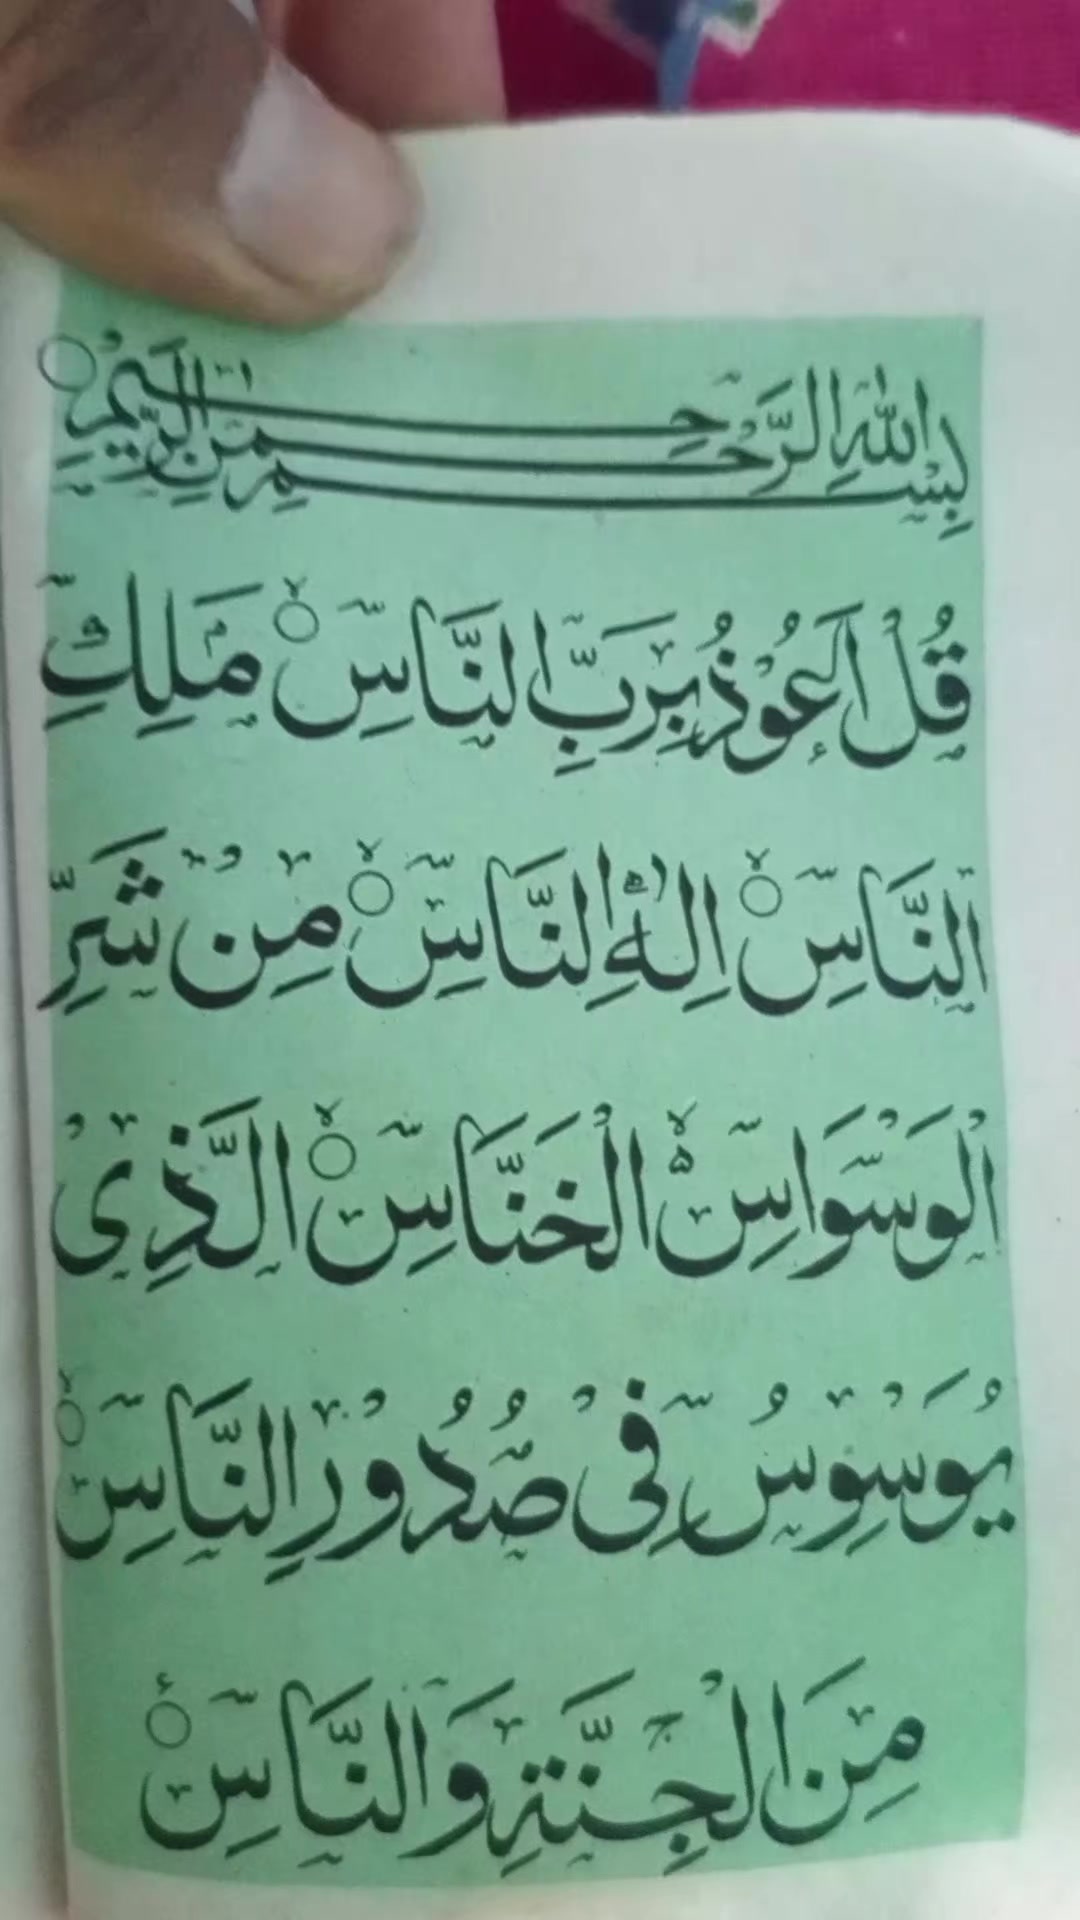 بِسْمِ اللهِ الرَّحْمٰنِ الرَّحِيْمِ
قُلْ اَعُوْذُ بِرَبِّ النَّاسِ مَلِكِ
النَّاسِ اِلٰهِ النَّاسِ مِنْ شَرِّ
الْوَسْوَاسِ الْخَنَّاسِ الَّذِىْ
يُوَسْوِسُ فِىْ صُدُوْرِ النَّاسِ
مِنَ الْجِنَّةِ وَالنَّاسِ